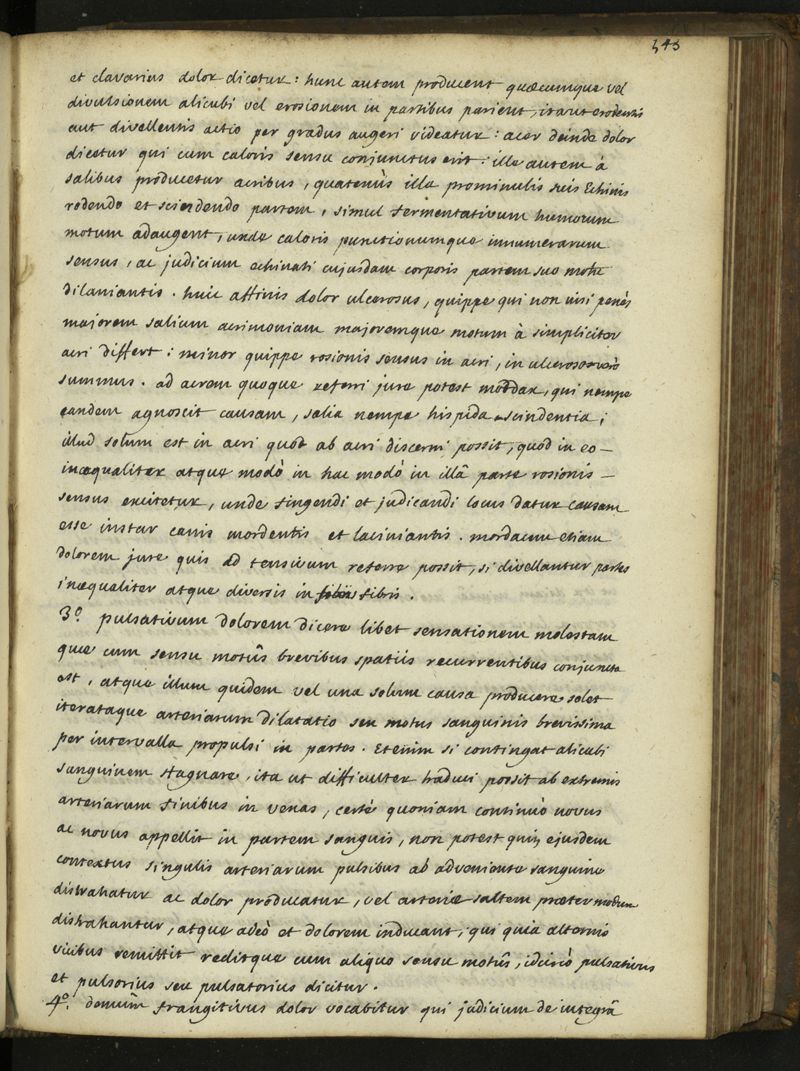 543
et clavarius dolor dicetur : hunc autem producent quæcumque vel
divulsionem alicubi vel erosionem in partibus parient, ita ut erodentis
aut divellentis actio per gradus augeri videatur : acer deinde dolor
dicetur qui cum caloris sensu conjunctus erit : ille autem à
salibus producetur acribus, quatenùs illa prominulis suis Echinis
rodendo et scindendo partem, simul fermentativum humorum
motum adaugent, unde caloris punctionumque innumerarum
sensus, ac judicium echinati cujusdam corporis partem suo motu
dilaniantis. huic affinis dolor ulcerosus, quippe qui non nisi penès
majorem salium acrimoniam majoremque motum à simpliciter
acri differt : minor quippe rosionis sensus in acri, in ulceroso verò
summus. ad acrem quoque referri jure potest mordax, qui nempe
eandem agnoscit causam, salia nempe hispida scindentia ;
illud solum est in acri quod ab acri discerni possit, quòd in eo –
inæqualiter atque modò in hac modò in illâ parte rosionis –
sensus excitetur, unde fingendi et judicandi locus datur causam
esse instar canis mordentis et laciniantis. mordacem etiam
dolorem jure quis ad tensivum referre possit, si divellantur partes
inæqualiter atque diversis in fibris.
3º. pulsativum dolorem dicere libet sensationem molestam
quæ cum sensu motûs brevibus spatiis recurrentibus conjuncta
est, atque illum quidem vel una solum causa producere solet
iterataque arteriarum dilatatio seu motus sanguinis brevissima
per intervalla propulsi in partes. Etenim si contingat alicubi
sanguinem stagnare, ita ut difficulter traduci possit ab extremis
arteriarum finibus in venas, certè quoniam continuò novus
ac novus appellit in partem sanguis, non potest quin ejusdem
contextus singulis arteriarum pulsibus ab adveniente sanguine
distrahatur ac dolor producatur, vel arteriæ saltem præter modum
distrahantur, atque adeò et dolorem inducant, qui quia alternis
vicibus remittit reditque cum aliquo sensu motûs, idcircò pulsativus
et pulsorius seu pulsatorius dicitur.
4º. demùm frangitivus dolor vocabitur qui judicium de integrâ